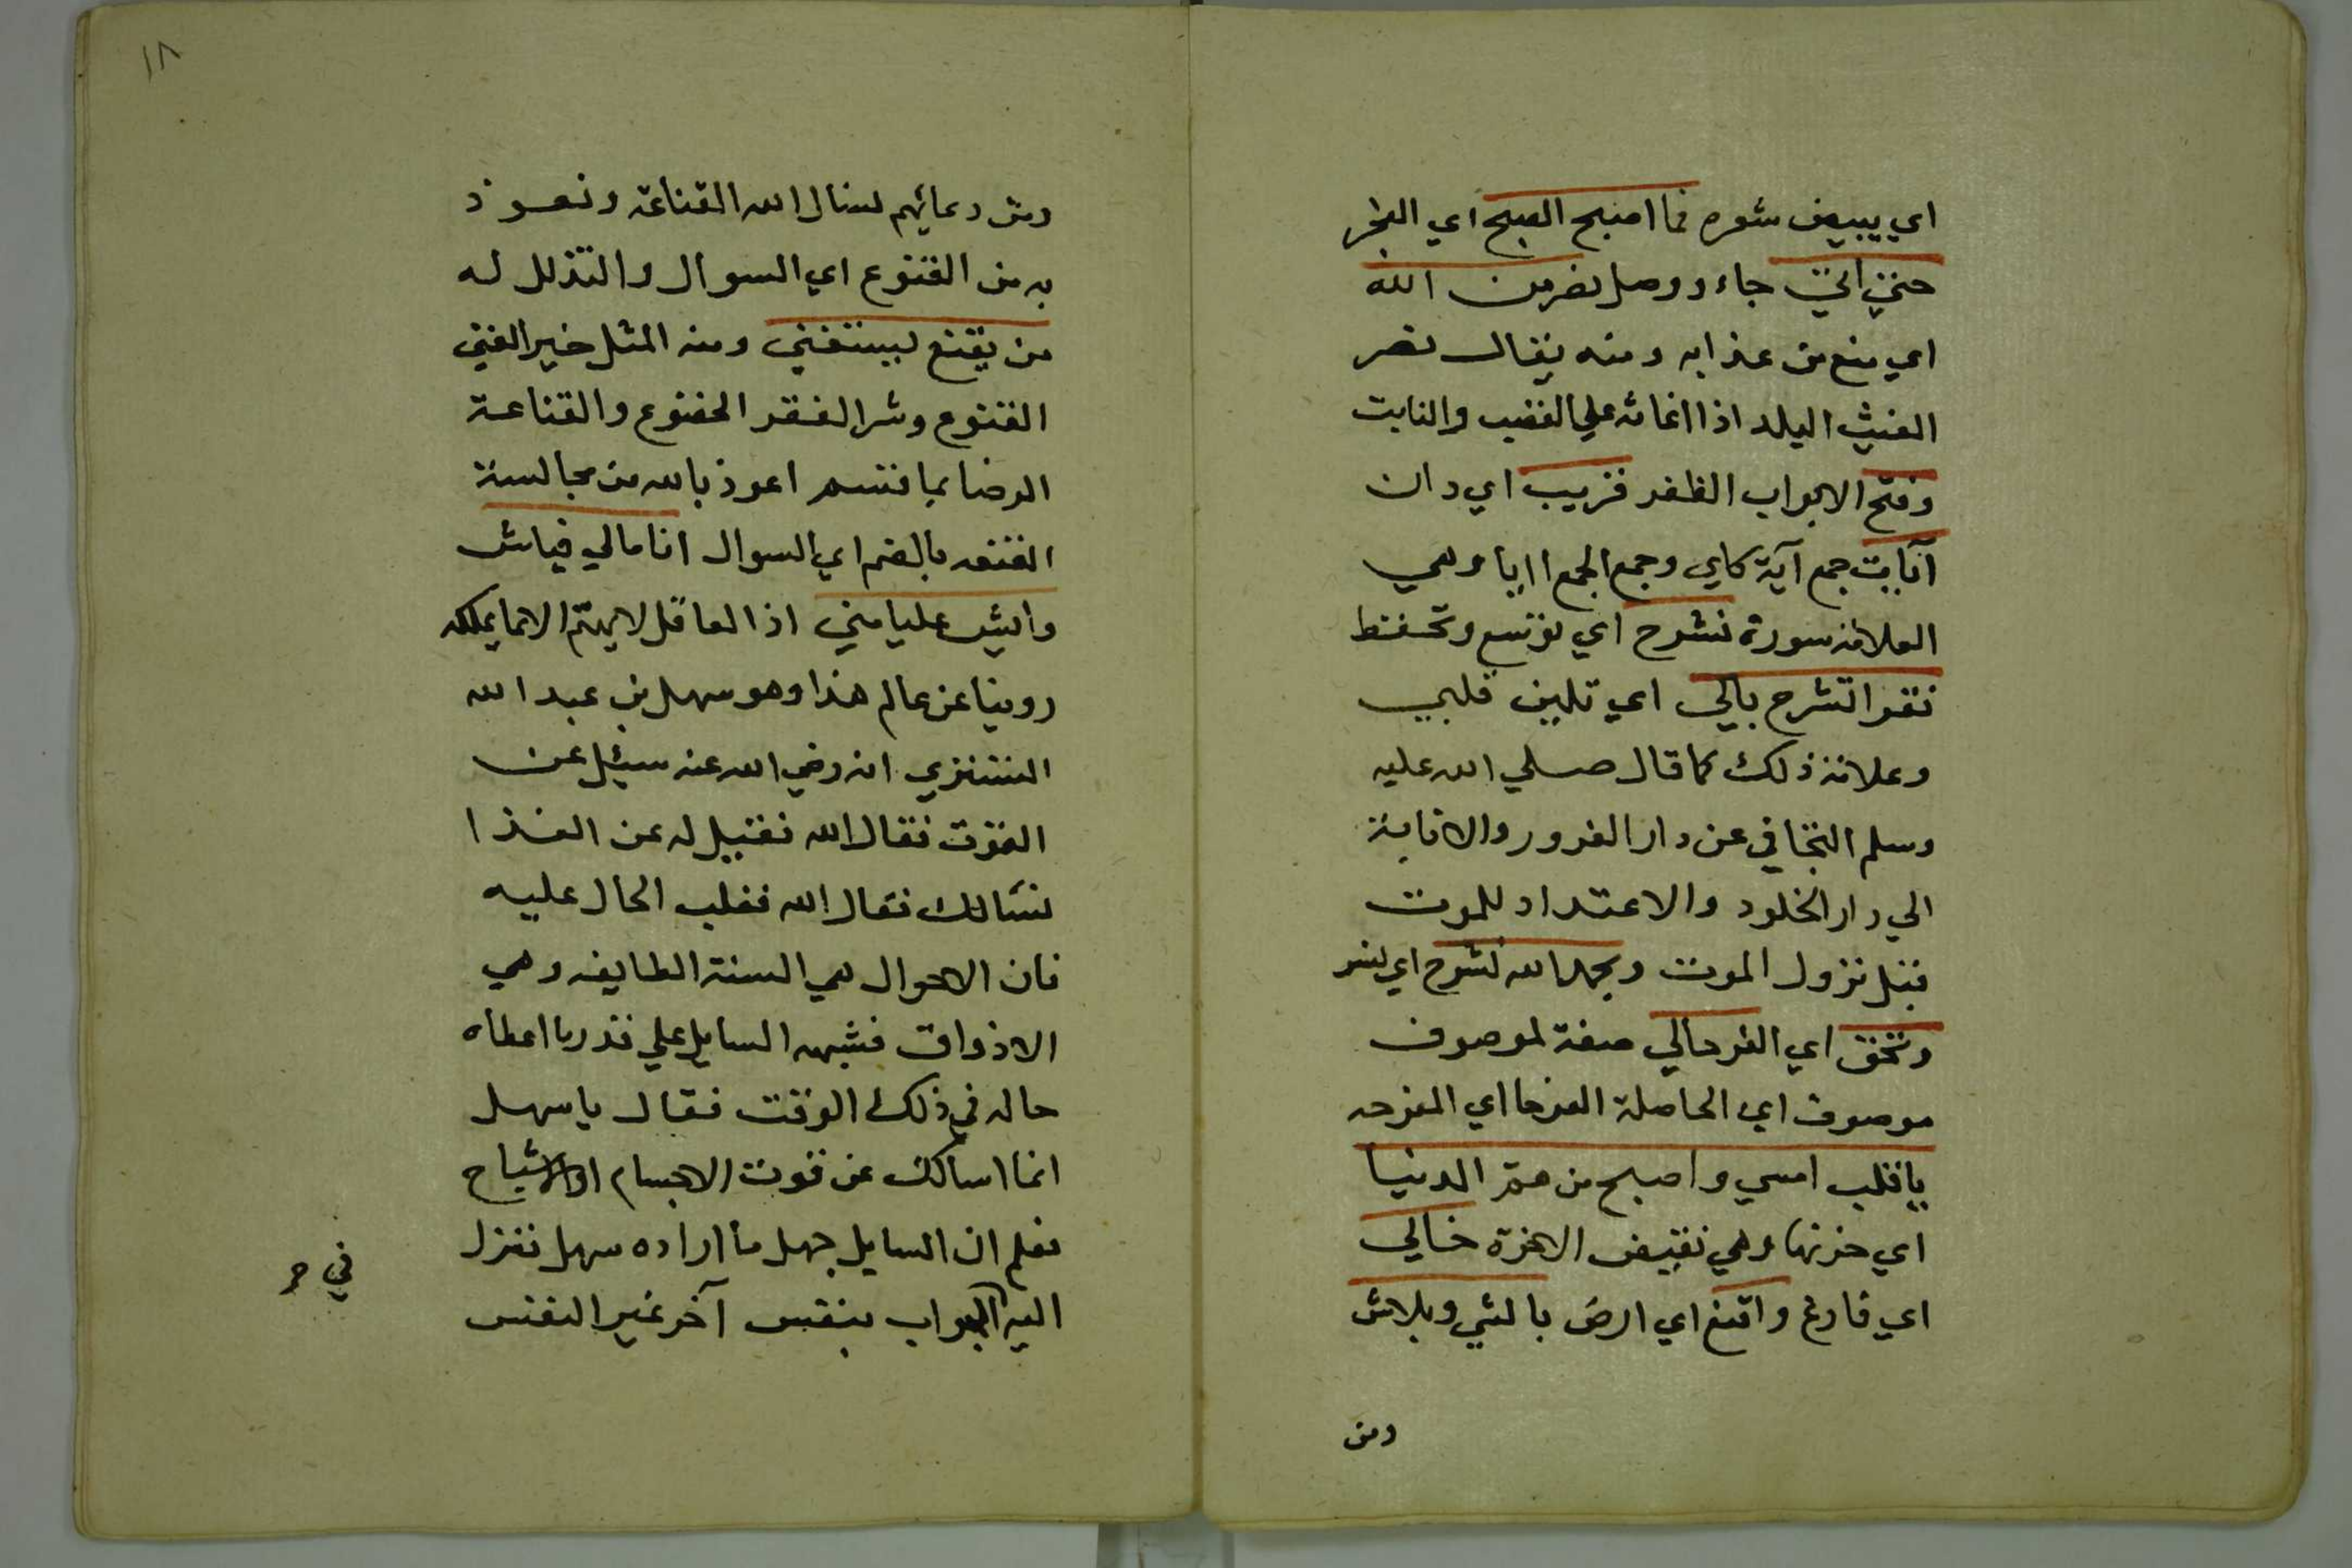 اي يبيض شعره فما اصبح الصبح اي الفجر
حتي اتي جاء ووصل نصر من الله
اي منع من عذابه ومنه يقال نصر
الغيث البلد اذا اغاثه علي الخصب والنابت
وفتح الابواب الظفر قريب اي دان
آيات جمع آية كاي وجمع الجمع اايا وهي
العلامة سورة نشرح اي نوسع ونحفظ
نقرا تشرح بالي اي تلين قلبي
وعلامة ذلك كما قال صلي الله عليه
وسلم التجافي عن دار الغرور والانابة
الي دار الخلود والاعتداد للموت
قبل نزول الموت وبحمد الله نشرح اي نسر
ونحن اي الفرحالي صفة لموصوف
موصوف اي الحاصلة الفرحا اي المفرحه
يا قلب امسي واصبح من هم الدنيا
اي حزنها وهي نقيض الاخرة خالي
اي فارغ واقنع اي ارض بالشي وبلاش
ومن
١٨
ومن دعائهم نسال الله القناعة ونعوذ
به من القنوع اي السوال والتذلل له
من يقنع ليستغني ومنه المثل خير الغني
القنوع وشر الفقر الخضوع والقناعة
الرضا بما قسم اعوذ بالله من مجالسة
القنعه بالضم اي السوال انا مالي فياش
وايش عليا مني اذ العاقل لا يهتم الا بما يملكه
روينا عن عالم هذا وهو سهل بن عبد الله
التستري انه رضي الله عنه سئل عن
القوت فقال الله فقيل له عن الغذا
نسالك فقال الله فغلب الحال عليه
فان الاحوال هي السنة الطايفه وهي
الاذواق فشبهه السايل علي قدر ما اعطاه
حاله في ذلك الوقت فقال يا سهل
انما اسالك عن قوت الاجسام او الاشباح
فعلم ان السايل جهل ما اراده سهل فنزل
اليه الجواب بنفس آخر غير النفس
في